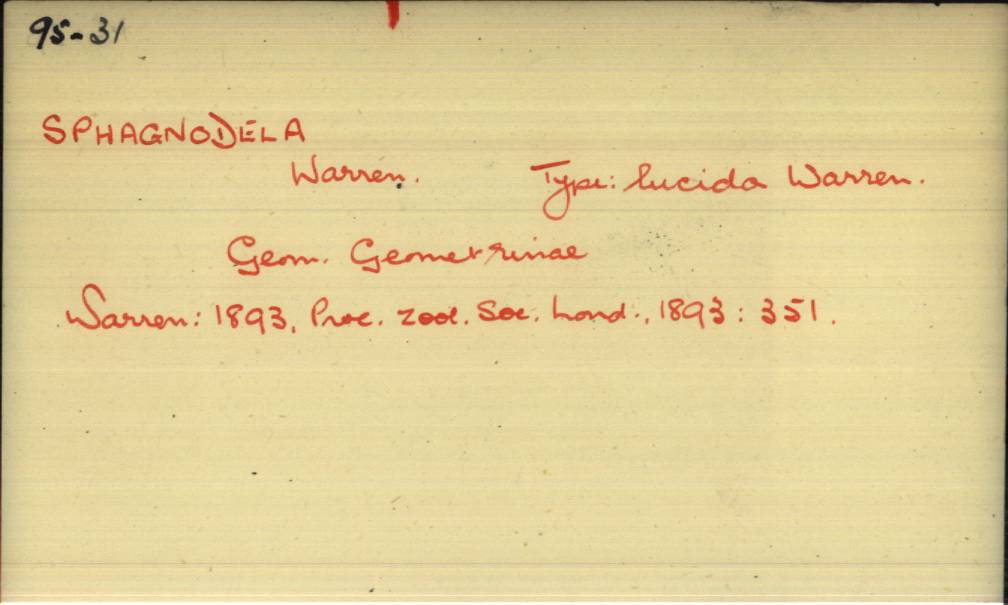 95-31
SPHAGNODELA
Warren. Type: lucida Warren.
Geom. Geometrinae
Warren: 1893, Proc. zool. Soc. Lond., 1893: 351.